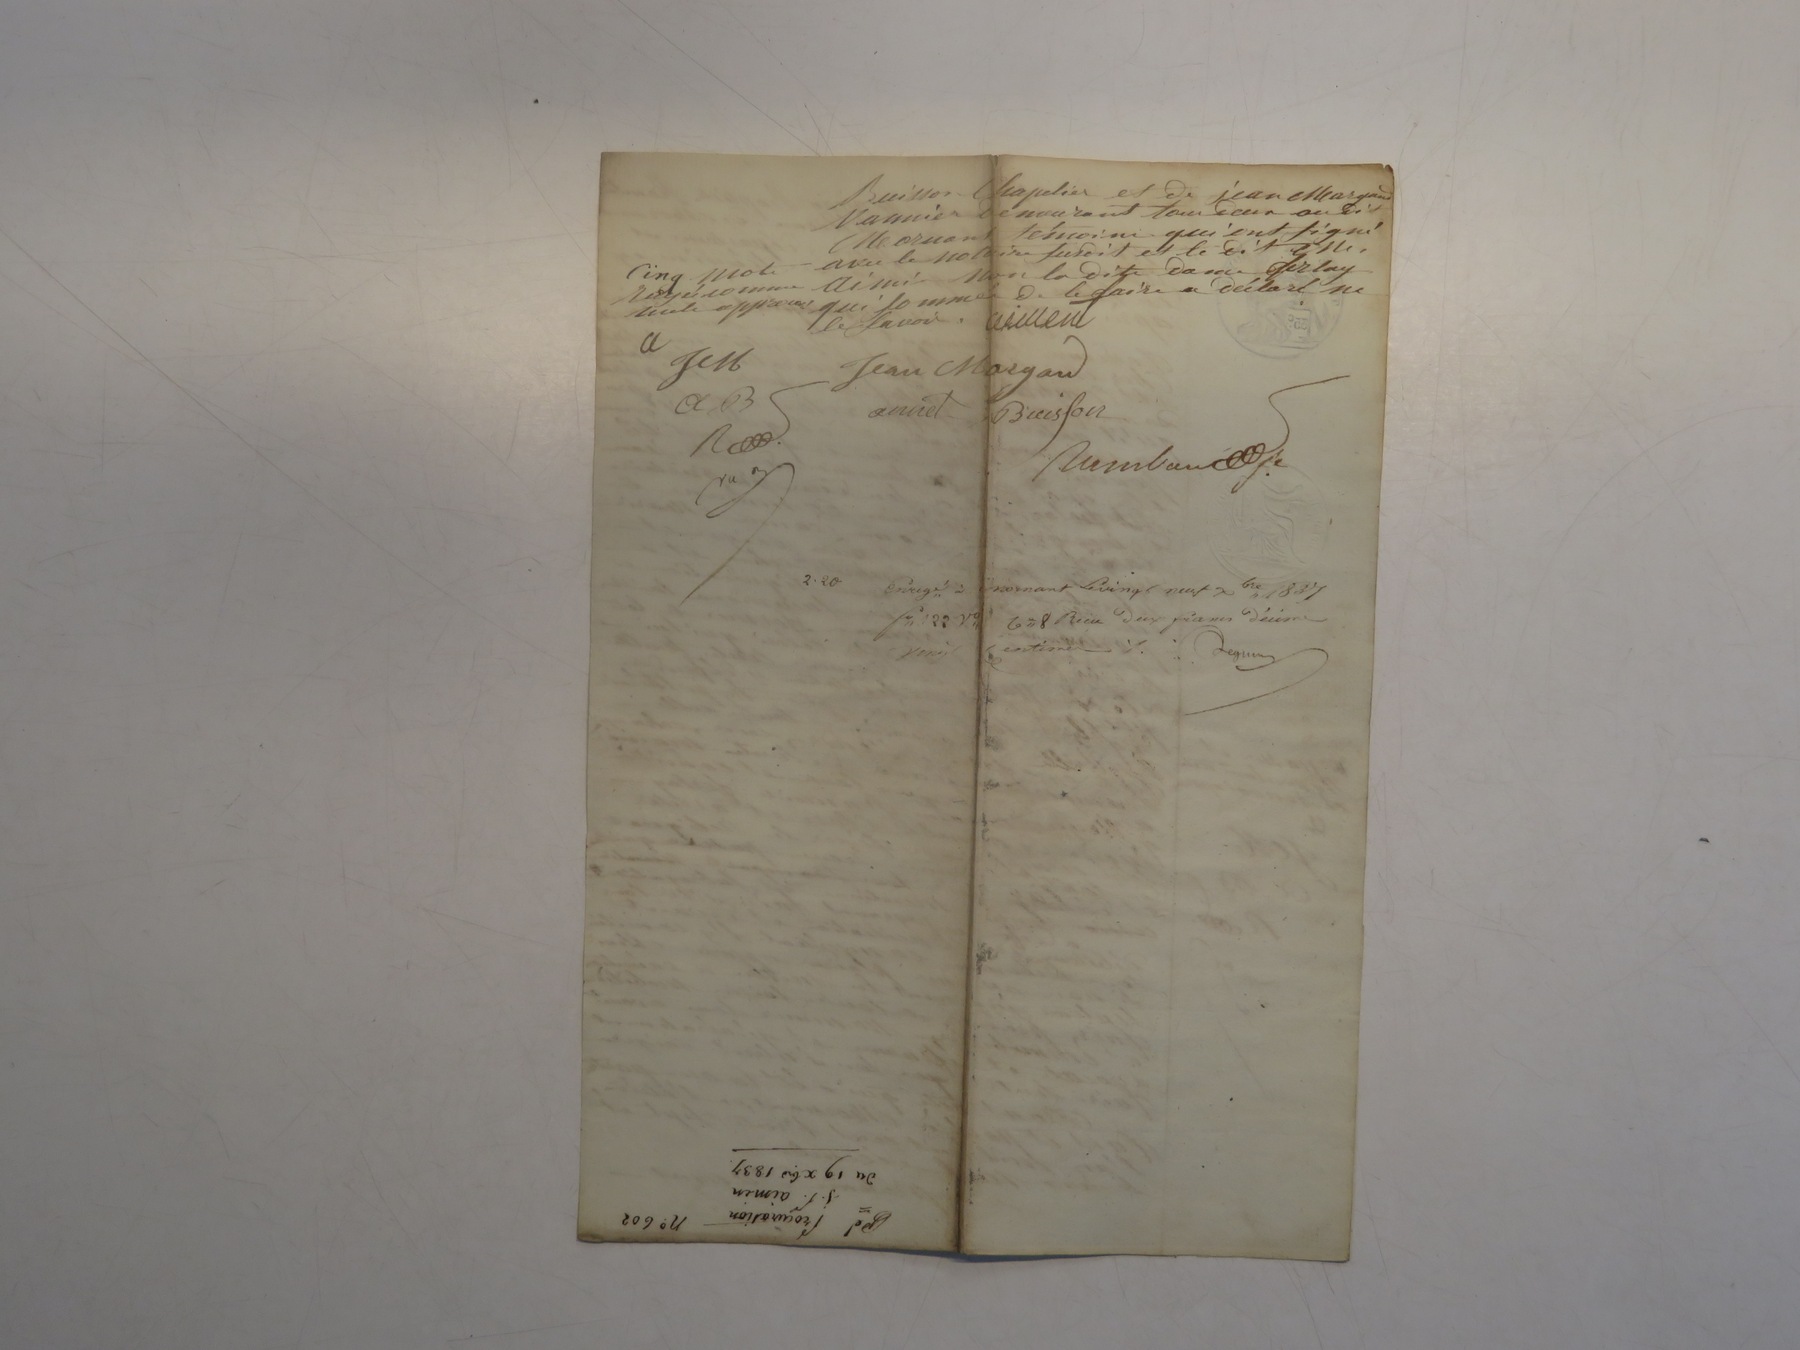 Buisson Chapelier et de jean Margand
Vannier demeurant tous deux au dit
Mornant témoins qui ont signé
avec le notaire susdit et le dit Srs.
Aimé non la dite dame Gerlay
qui sommée de le faire a déclaré ne
le savoir. aimé
Cinq mots
rayés comme
nuls approuvés
a
JM Jean Margand
a B annet Buisson
R Rambaud
2.20 Enregé à Mornant le vingt neuf xbre 1837
fo 122 Vo C 8 Reçu deux francs décime
vingt centimes
No 602
Bd Procuration
j. f. aimen
du 19 xbre 1837